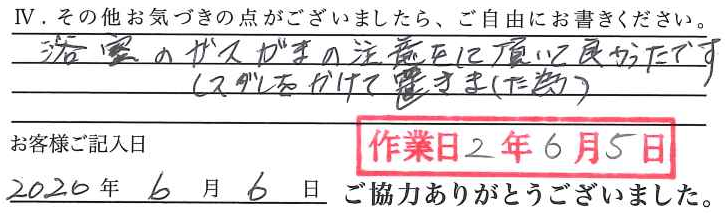 Ⅳ. その他お気づきの点がございましたら、ご自由にお書きください。
浴室のガスがまの注意をして頂いて良かったです
(スダレをかけて置きました為)
お客様ご記入日
作業日2年6月5日
2020年6月6日 ご協力ありがとうございました。